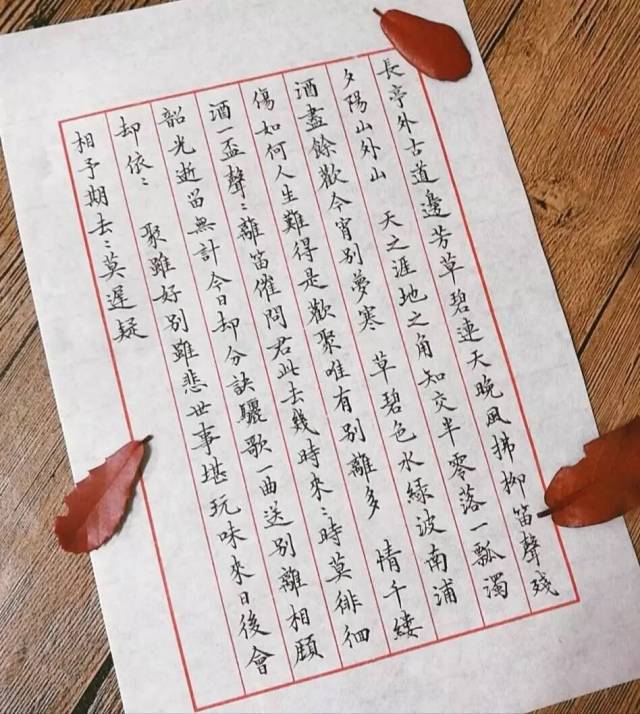 長亭外古道邊芳草碧連天晚風拂柳笛聲殘
夕陽山外山 天之涯地之角知交半零落一瓢濁
酒盡餘歡今宵別夢寒 草碧色水綠波南浦
傷如何人生難得是歡聚唯有別離多 情千縷
酒一盃聲〻離笛催問君此去幾時來〻時莫徘徊
韶光逝留無計今日却分訣驪歌一曲送別離相顧
却依〻 聚雖好別雖悲世事堪玩味來日後會
相予期去〻莫遲疑